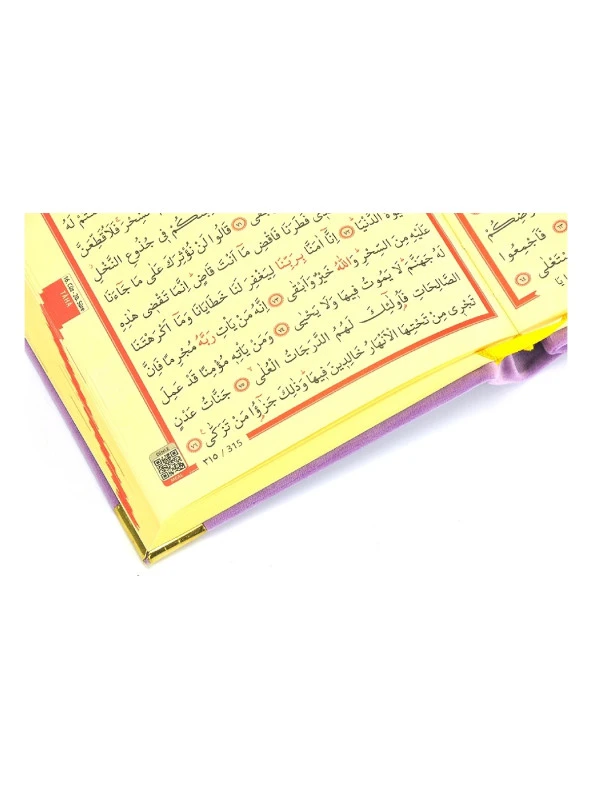 تُمْ لَهُ
السِّحْرَ فَلَاُقَطِّعَنَّ
نَّكُمْ فِي جُذُوعِ النَّخْلِ
قٰى ٧١ قَالُوا لَنْ نُؤْثِرَكَ عَلٰى مَا جَاءَنَا
فَطَرَنَا فَاقْضِ مَا اَنْتَ قَاضٍ اِنَّمَا تَقْضِي هٰذِهِ
يٰوةَ الدُّنْيَا ٧٢ اِنَّا اٰمَنَّا بِرَبِّنَا لِيَغْفِرَ لَنَا خَطَايَانَا وَمَا اَكْرَهْتَنَا
عَلَيْهِ مِنَ السِّحْرِ وَاللّٰهُ خَيْرٌ وَاَبْقٰى ٧٣ اِنَّهُ مَنْ يَأْتِ رَبَّهُ مُجْرِمًا فَاِنَّ
لَهُ جَهَنَّمَ لَا يَمُوتُ فِيهَا وَلَا يَحْيٰى ٧٤ وَمَنْ يَأْتِهِ مُؤْمِنًا قَدْ عَمِلَ
الصَّالِحَاتِ فَاُولٰئِكَ لَهُمُ الدَّرَجَاتُ الْعُلٰى ٧٥ جَنَّاتُ عَدْنٍ
تَجْرِي مِنْ تَحْتِهَا الْاَنْهَارُ خَالِدِينَ فِيهَا وَذٰلِكَ جَزٰؤُا مَنْ تَزَكّٰى ٧٦
٣١٥ / 315
TÂHÂ
فَاَجْمِعُوا